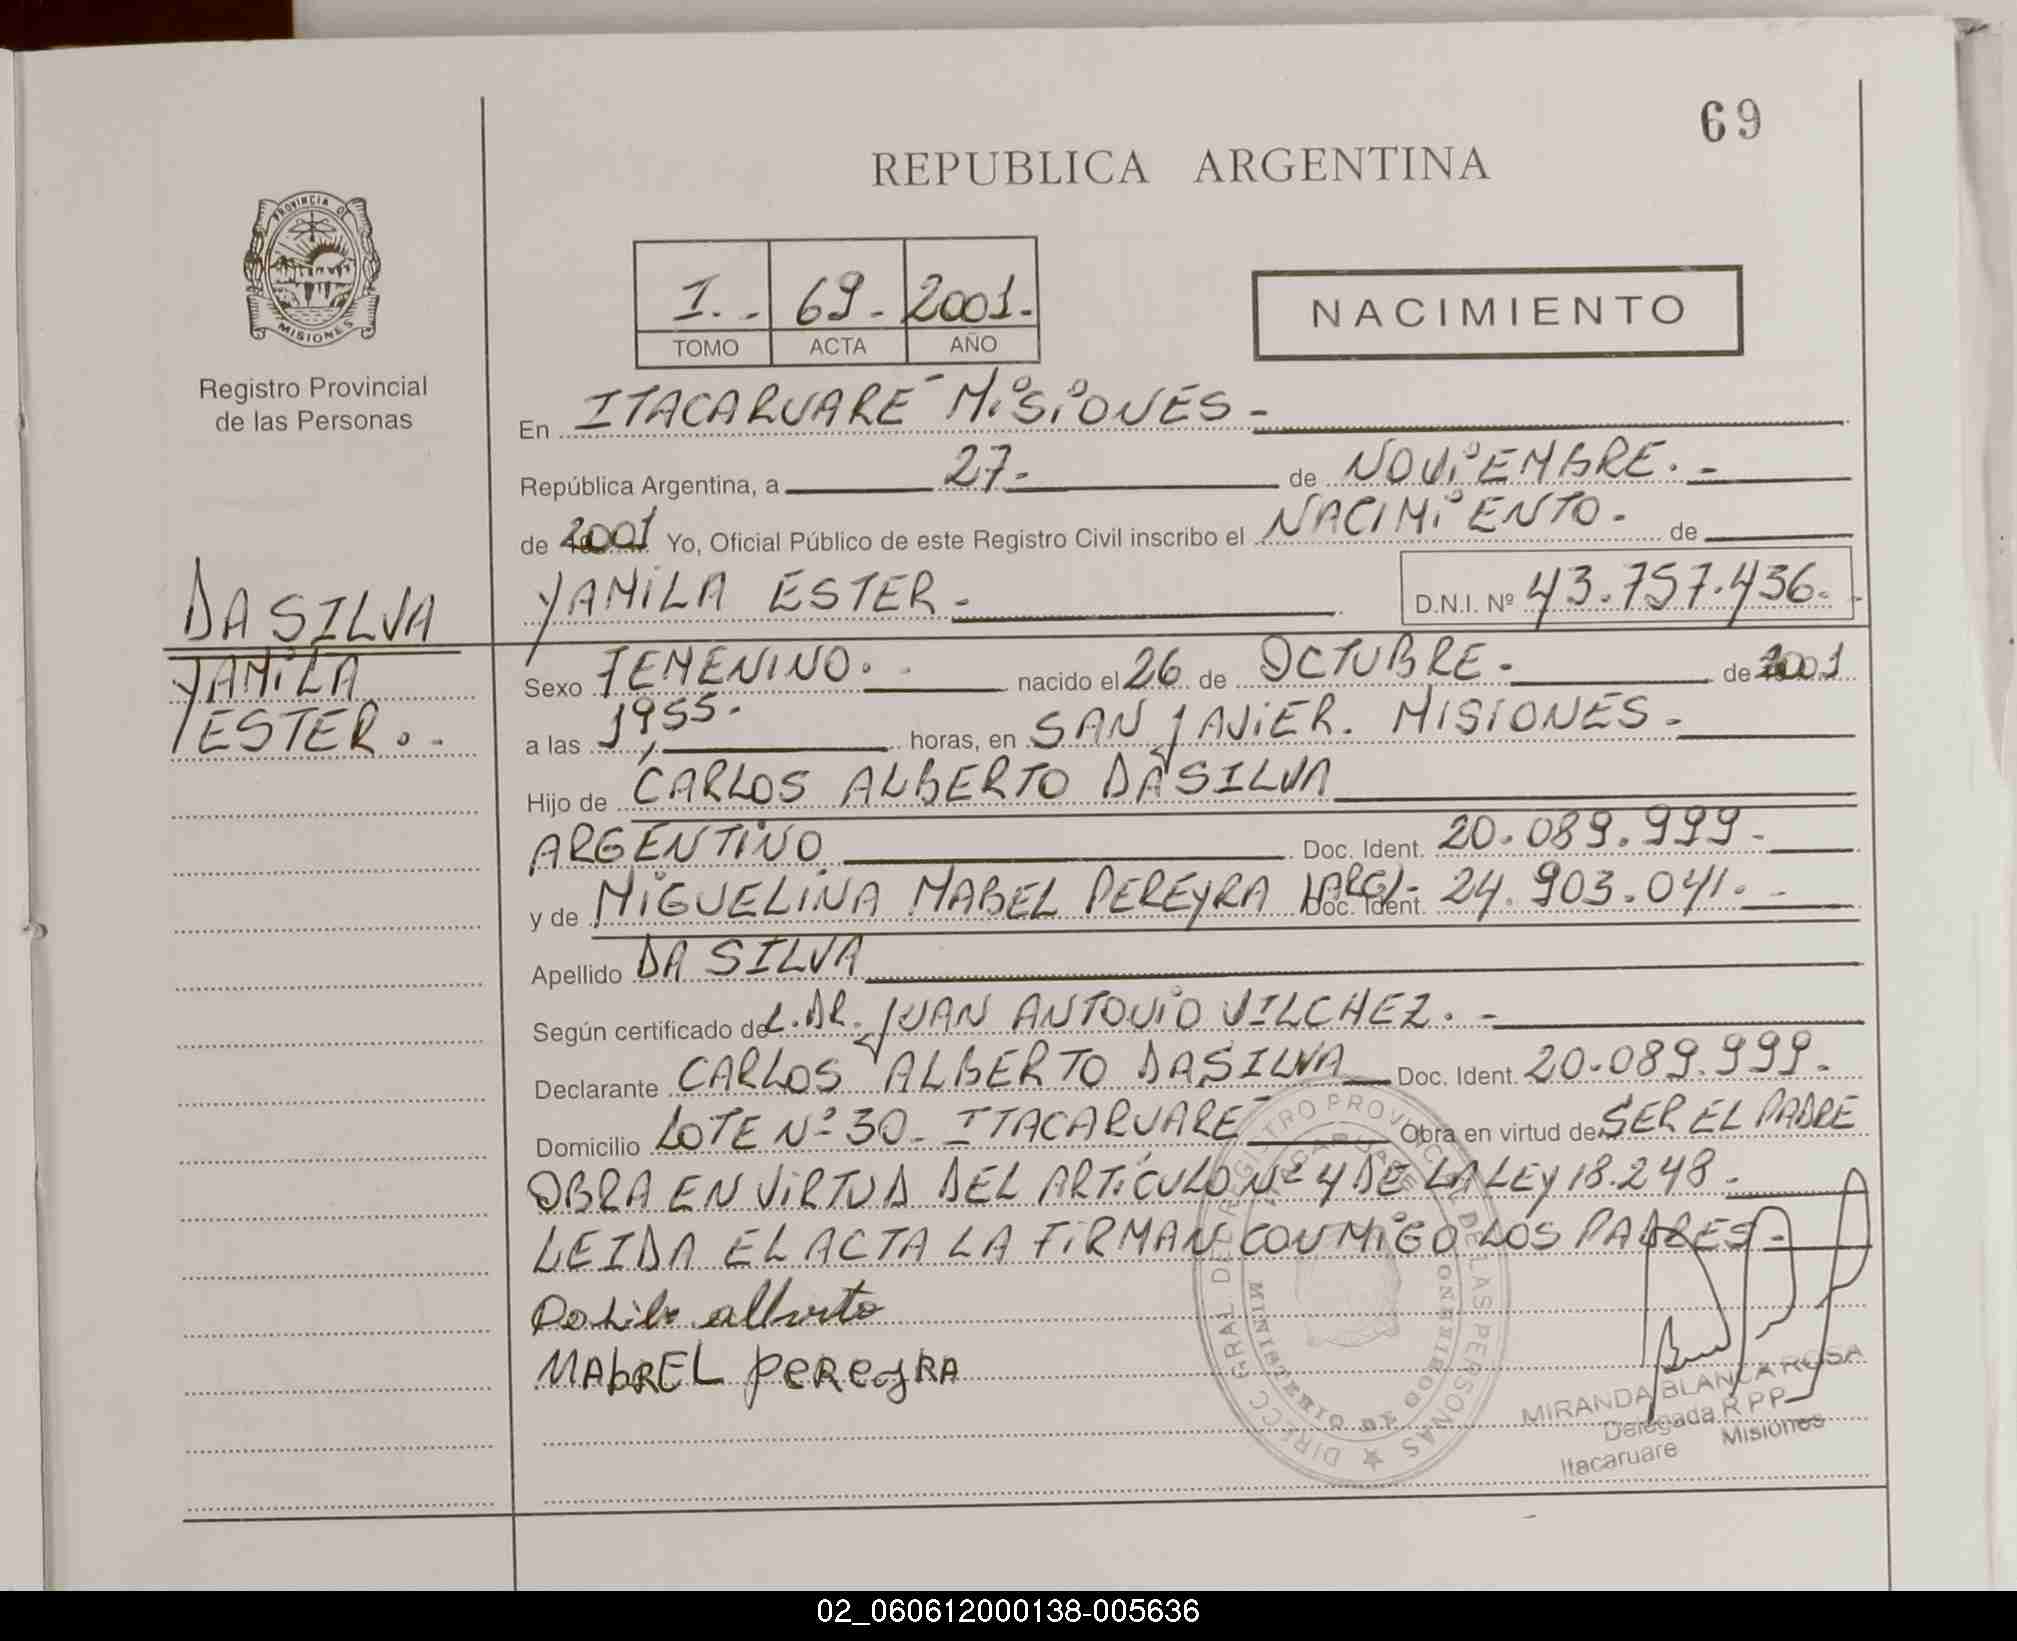 69
REPUBLICA ARGENTINA
PROVINCIA DE
MISIONES
Registro Provincial
de las Personas
1.- 69- 2001.-
TOMO ACTA AÑO
NACIMIENTO
En ITACARUARE MISIONES -
República Argentina, a 27- de NOVIEMBRE.-
de 2001 Yo, Oficial Público de este Registro Civil inscribo el NACIMIENTO- de
YAMILA ESTER- D.N.I. Nº 43.757.436-
DA SILVA
YAMILA
ESTER.-
Sexo FEMENINO.- nacido el 26 de OCTUBRE- de 2001
a las 1955- horas, en SAN JAVIER. MISIONES-
Hijo de CARLOS ALBERTO DA SILVA
ARGENTINO Doc. Ident. 20.089.999-
y de MIGUELINA MABEL PEREYRA (ARG)- Doc. Ident. 24.903.041.-
Apellido DA SILVA
Según certificado de L.DR. JUAN ANTONIO VILCHEZ.-
Declarante CARLOS ALBERTO DASILVA Doc. Ident. 20.089.999-
Domicilio LOTE Nº 30- ITACARUARE Obra en virtud de SER EL PADRE
OBRA EN VIRTUD DEL ARTICULO Nº 4 DE LA LEY 18.248-
LEIDA EL ACTA LA FIRMAN CONMIGO LOS PADRES-
alberto
MAbREL PEREyRA
DIRECC. GRAL. DEL REGISTRO PROVINCIAL DE LAS PERSONAS
ITACARUARE
MINISTERIO DE GOBIERNO
MIRANDA BLANCA ROSA
Delegada R P P
Itacaruare Misiones
02_060612000138-005636